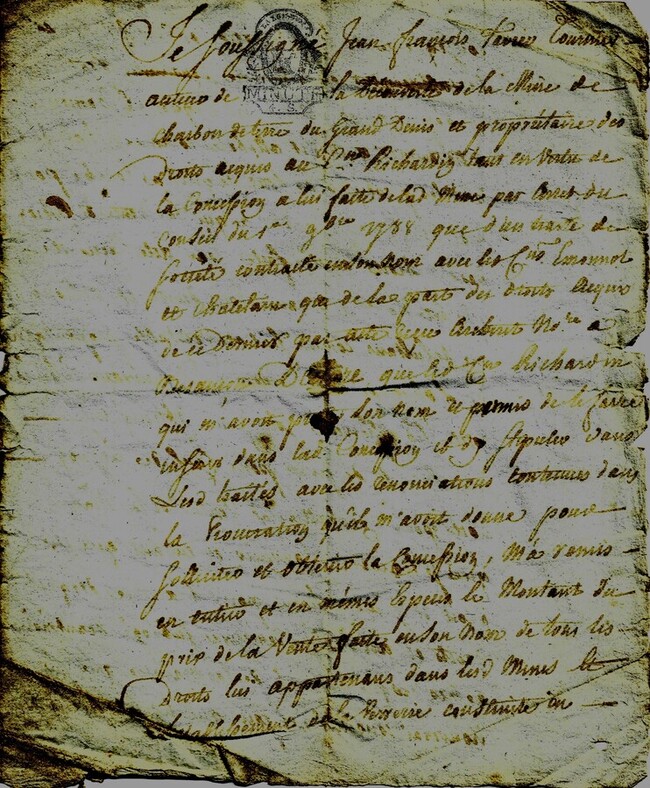 Je Soussigné Jean françois
MINUTE
de la Mine de
charbon de terre du Grand Denis et propriétaire des
Droits acquis au Cen Richardin tant en vertu de
la Concession a lui faite de lad Mine par Arret du
Conseil du 1er 9bre 1788 que d'un traité de
Société contracté en son Nom avec les Cns Emonnot
et Chatelain que de la part des Droits acquis
de ce Dernier par acte reçu Notre a
Besançon Déclare que led Cn Richardin
qui m'avoit son Nom et permis de le faire
inserer dans lad Concession et de stipuler dans
Lesd traités avec les renonciations contenues dans
la Procuration qu'il m'avoit donné pour
solliciter et obtenir la Concession, Ma remis
en entier et en mêmes Especes le Montant du
prix de la Vente faite en son Nom de tous les
Droits lui appartenans dans lesd Mines et
Etablissement de la Verrerie construite en